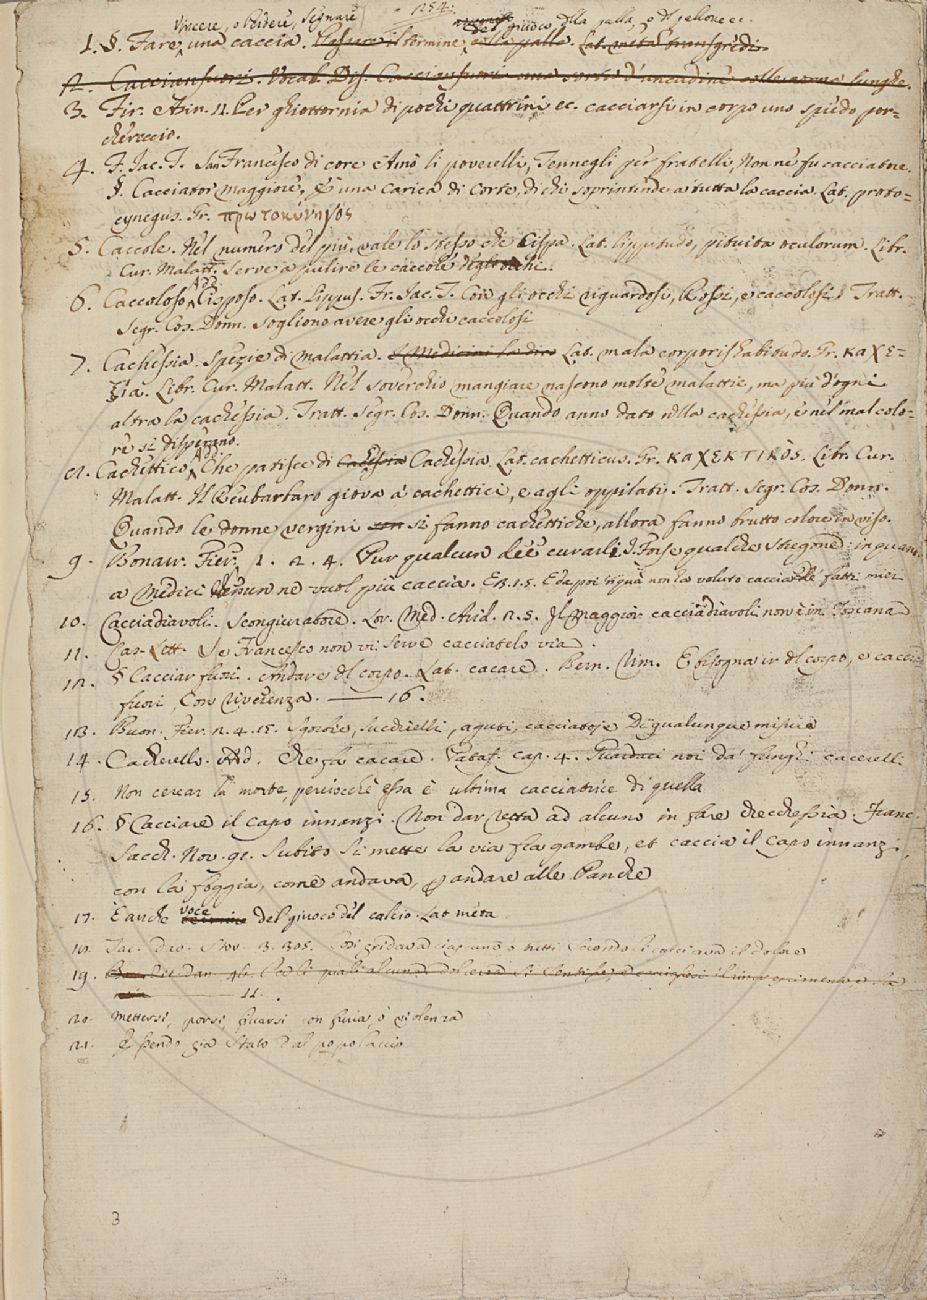 1254.
Vincere, o Perdere, Segnare del giuoco della palla, o del pallone ec.
1. §. Fare una caccia. Passare il termine, della palla. Lat. meta transgredi.
2. Cacciensuoni. Vocab. Dis. Cacciensuoni una sorte d'ancudine colle corna lunghe.
3. Fir. Asin. 11. Per ghiottornia di pochi quattrini ec. cacciarsi in corpo uno spiedo por=
chereccio.
4. F. Jac. T. San Francesco di core Amò li poverelli, Tennegli per fratelli, Non ne fu cacciatore.
§. Cacciator maggiore, è una carica di Corte, di chi soprintende a tutta la caccia. Lat. proto=
cynegus. Gr. πρωτοκύνηγος
5. Caccole. Nel numero del più, vale lo stesso che Cispa. Lat. lippitudo, pituita oculorum. Libr.
Cur. Malatt. Serve a pulire le caccole degli occhi.
6. Caccoloso Add. Cisposo. Lat. Lippus. Fr. Jac. T. Con gli occhi riguardosi, Rossi, e caccolosi. Tratt.
Segr. Cos. Donn. Sogliono avere gli occhi caccolosi
7. Cachessia. Spezie di malattia. I Medicini la dico Lat. mala corporis habitudo. Gr. καχε=
ξία. Libr. Cur. Malatt. Nel soverchio mangiare nascono molte malattie, ma più d'ogni
altra la cachessia. Tratt. Segr. Cos. Donn. Quando anno dato nella cachessia, e nel mal colo=
re si disperano.
8. Cachettico Add. Che patisce di Cachessia Cachessia. Lat. cachetticus. Gr. καχεκτικὸς. Libr. Cur.
Malatt. Il Reubarbaro giova a' cachettici, e agli oppilati. Tratt. Segr. Cos. Donn.
Quando le donne vergini son si fanno cachettiche, allora fanno brutto colore in viso.
9. Bonarr. Fier. 1. 2. 4. Pur qualcun dee curarli, S. Forse qualche stregone: in quan
a Medici nessun ne vuol più caccia. E 3. 1. 5. E da poi non ha voluto cacciar de' fatti miei
10. Cacciadiavoli. Scongiuratore. Lor. Med. Arid. 2. 5. Il maggior cacciadiavoli non è in Toscana
11. Car. Lett. Se Francesco non vi serve cacciatelo via.
12. § Cacciar fuori. Andare del corpo. Lat. cacare. Bern. Rim. E bisogna ir del corpo, e cacci
fuori, Con riverenza. —— 16.
13. Buon. Fier. 2. 4. 15. Sgorbie, succhielli, aguti, cacciatoje Di qualunque misura
14. Cacherello. Add. Che fa cacare. Pataf. cap. 4. Guardaci noi da' funghi cacerelli
15. Non cercar la morte, perciocchè essa è ultima cacciatrice di quella
16. § Cacciare il capo innanzi. Non dar retta ad alcuno in fare checchessia. Franc.
Sacch. Nov. 91. Subito si mette la via fra gambe, et caccia il capo innanzi,
con la foggia, come andava, per andare alle Panche
17. E anche voce termine del giuoco del calcio. Lat. meta
18. Jac. Dav. Stor. 3. 305. Così gridava ciascuno
19.
11.
20. Mettersi, porsi, ficarsi con furia, o violenza
21. Essendo già stato dal popolaccio
3